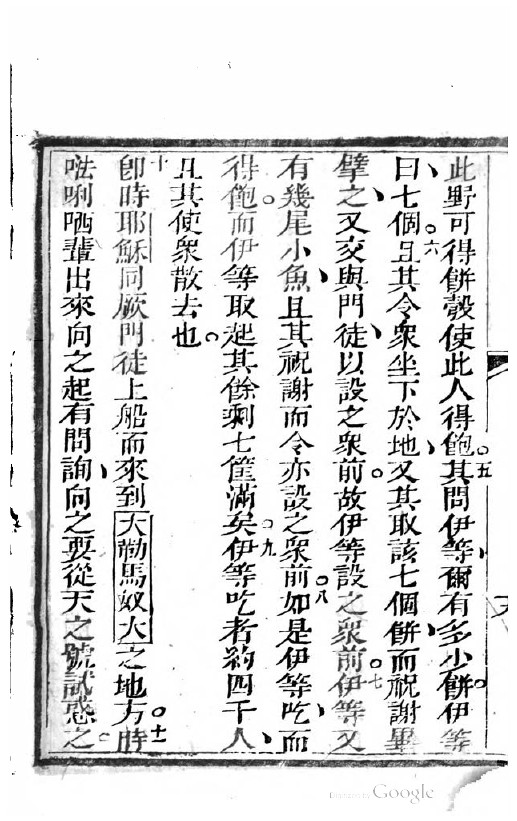 此野可得餅彀使此人得飽。五其問伊等、爾有多少餅。伊等
曰、七個。六且其令衆坐下於地、又其取該七個餅、而祝謝畢
擘之、又交與門徒、以設之衆前。故伊等設之衆前。七伊等又
有幾尾小魚、且其祝謝而令亦設之衆前。八如是伊等吃、而
得飽。而伊等取起其餘剩七筐滿矣。九伊等吃者約四千人、
且其使衆散去也。
十卽時耶穌同厥門徒上船而來到大勒馬奴大之地方。十一時
𠵽唎哂輩出來向之起有問詢、向之要從天之號試惑之。
Google